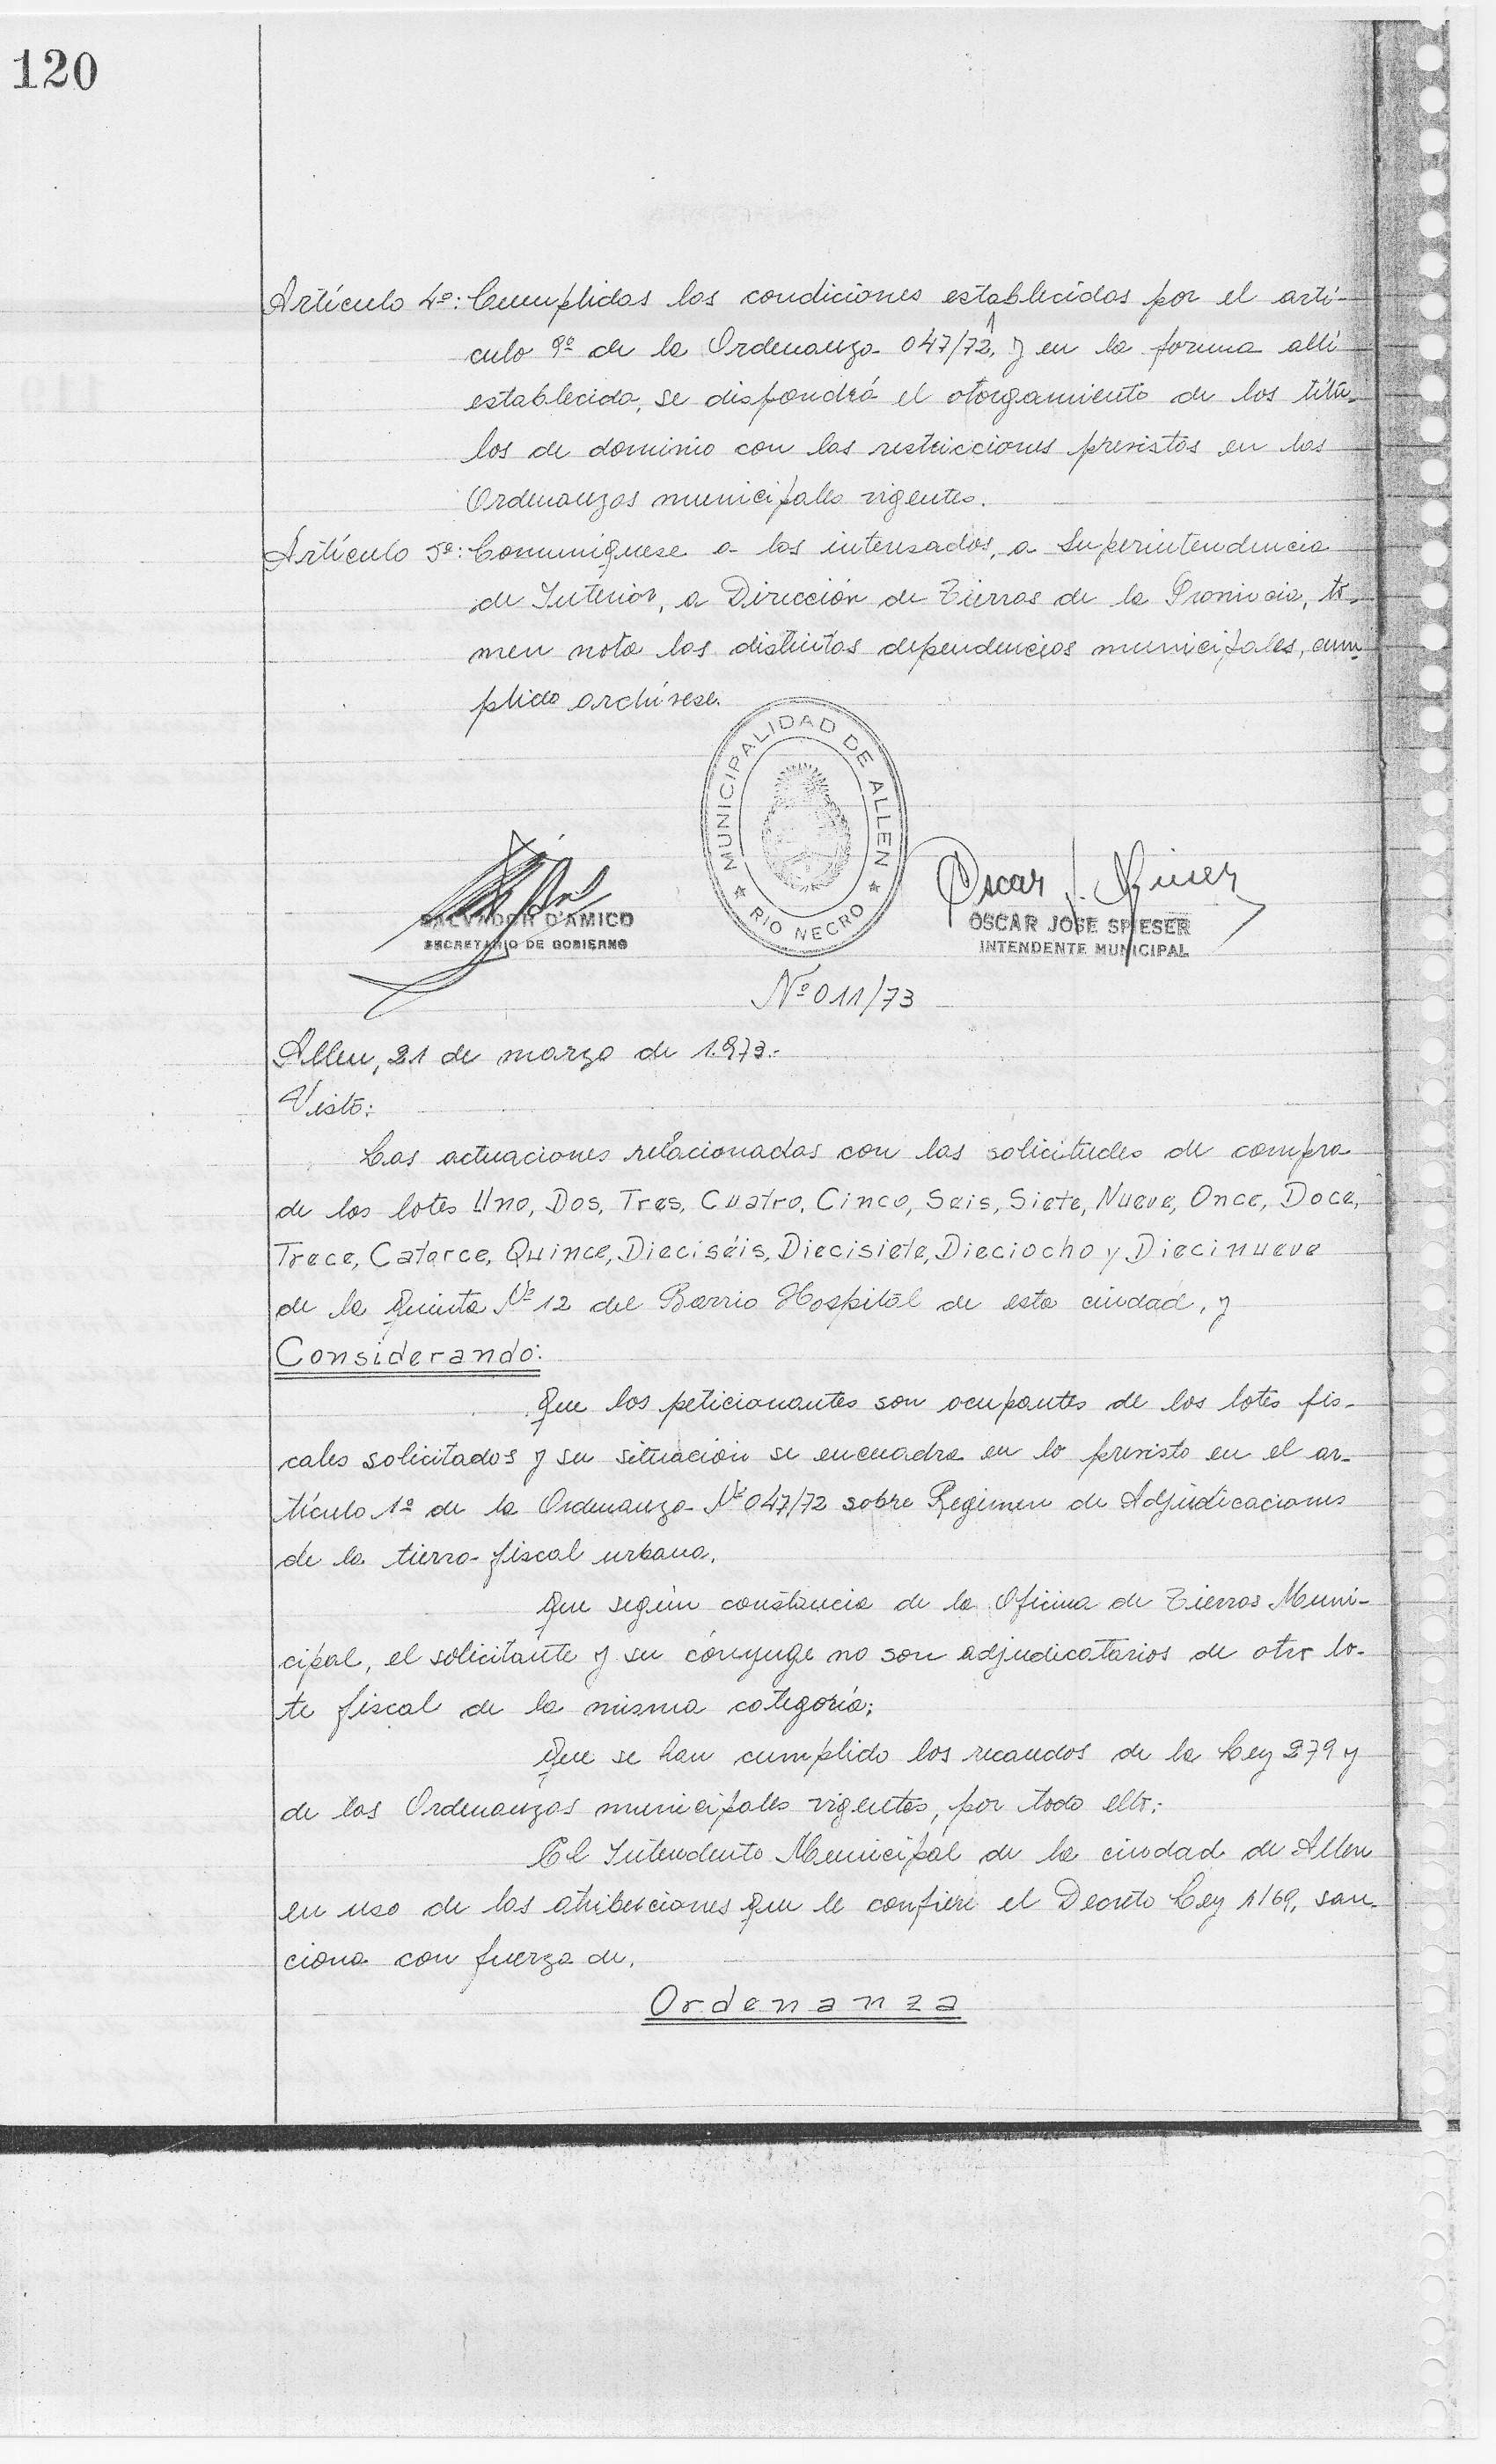 120
Artículo 4º: Cumplidas las condiciones establecidas por el artí-
culo 9º de la Ordenanza 047/72, y en la forma allí
establecida, se dispondrá el otorgamiento de los títu-
los de dominio con las restricciones previstas en las
Ordenanzas municipales vigentes.
Artículo 5º: Comuníquese a los interesados, a Superintendencia
de Interior, a Dirección de Tierras de la Provincia, to-
men nota las distintas dependencias municipales, cum-
plido archívese.
MUNICIPALIDAD DE ALLEN
RIO NEGRO
Oscar J. Spieser
SALVADOR D'AMICO
SECRETARIO DE GOBIERNO
OSCAR JOSE SPIESER
INTENDENTE MUNICIPAL
Nº 011/73
Allen, 21 de marzo de 1.973.-
Visto:
Las actuaciones relacionadas con las solicitudes de compra
de los lotes Uno, Dos, Tres, Cuatro, Cinco, Seis, Siete, Nueve, Once, Doce,
Trece, Catorce, Quince, Dieciséis, Diecisiete, Dieciocho y Diecinueve
de la Quinta Nº 12 del Barrio Hospital de esta ciudad, y
Considerando:
Que los peticionantes son ocupantes de los lotes fis-
cales solicitados y su situación se encuadra en lo previsto en el ar-
tículo 1º de la Ordenanza Nº 047/72 sobre Regimen de Adjudicaciones
de la tierra fiscal urbana,
Que según constancia de la Oficina de Tierras Muni-
cipal, el solicitante y su cónyuge no son adjudicatarios de otro lo-
te fiscal de la misma categoría;
Que se han cumplido los recaudos de la Ley 279 y
de las Ordenanzas municipales vigentes, por todo ello;
El Intendente Municipal de la ciudad de Allen
en uso de las atribuciones que le confiere el Decreto Ley 1/69, san-
ciona con fuerza de,
Ordenanza